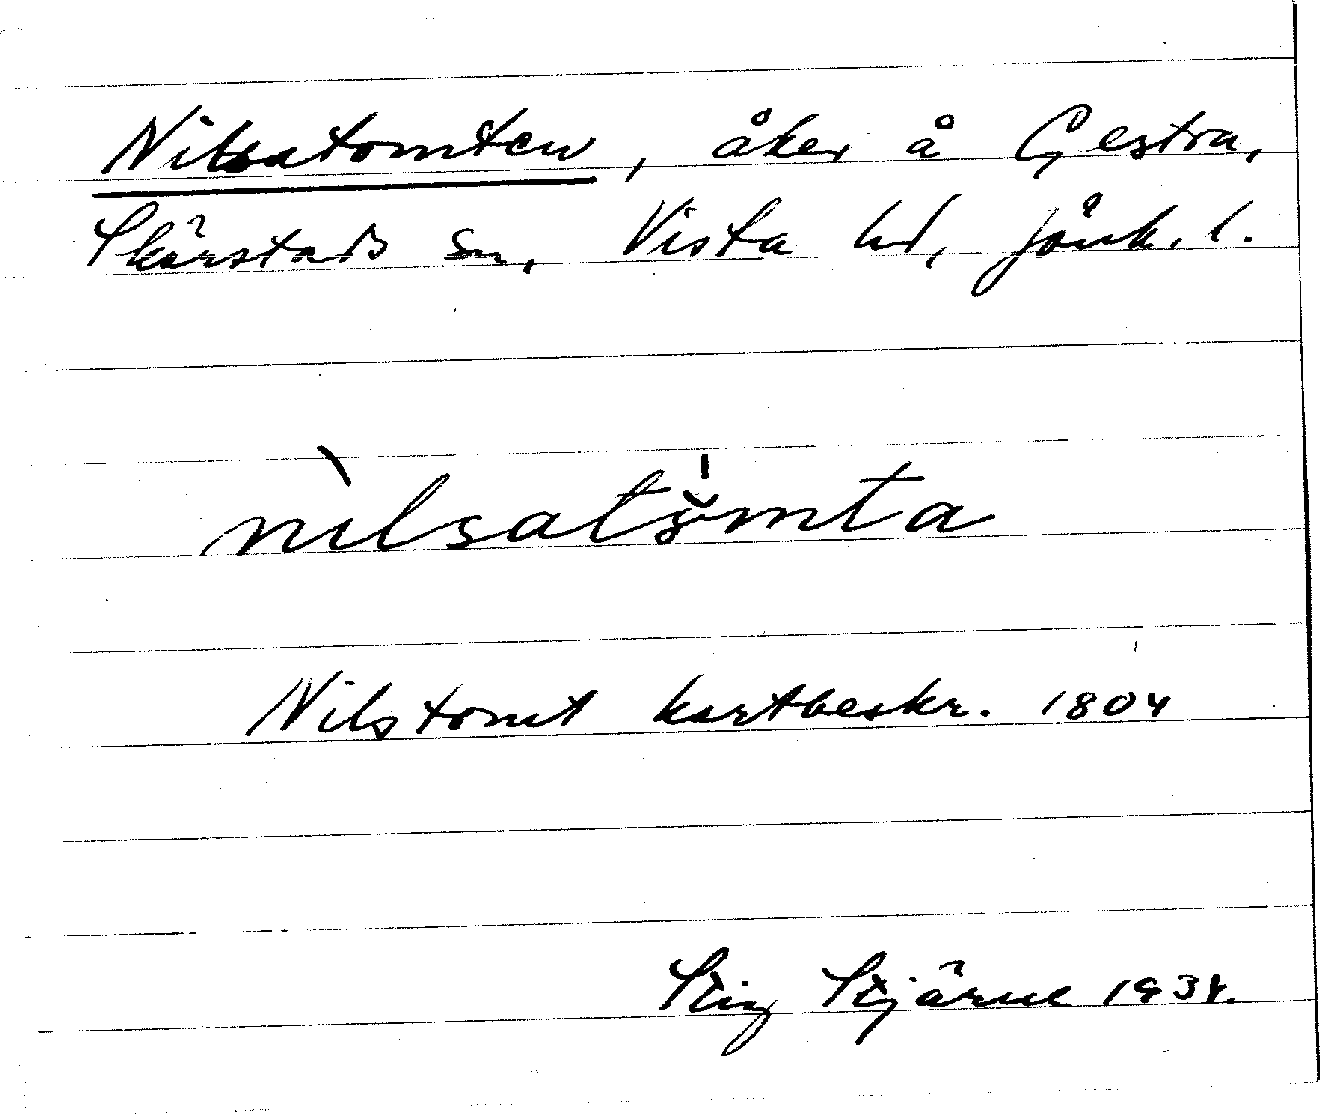 Nilsatomten, åker å Gestra,
Skärstads sn, Vista hd, Jönk. l.
nìlsatømta
Nilstomt kartbeskr. 1804
Stig Stjärne 1934.